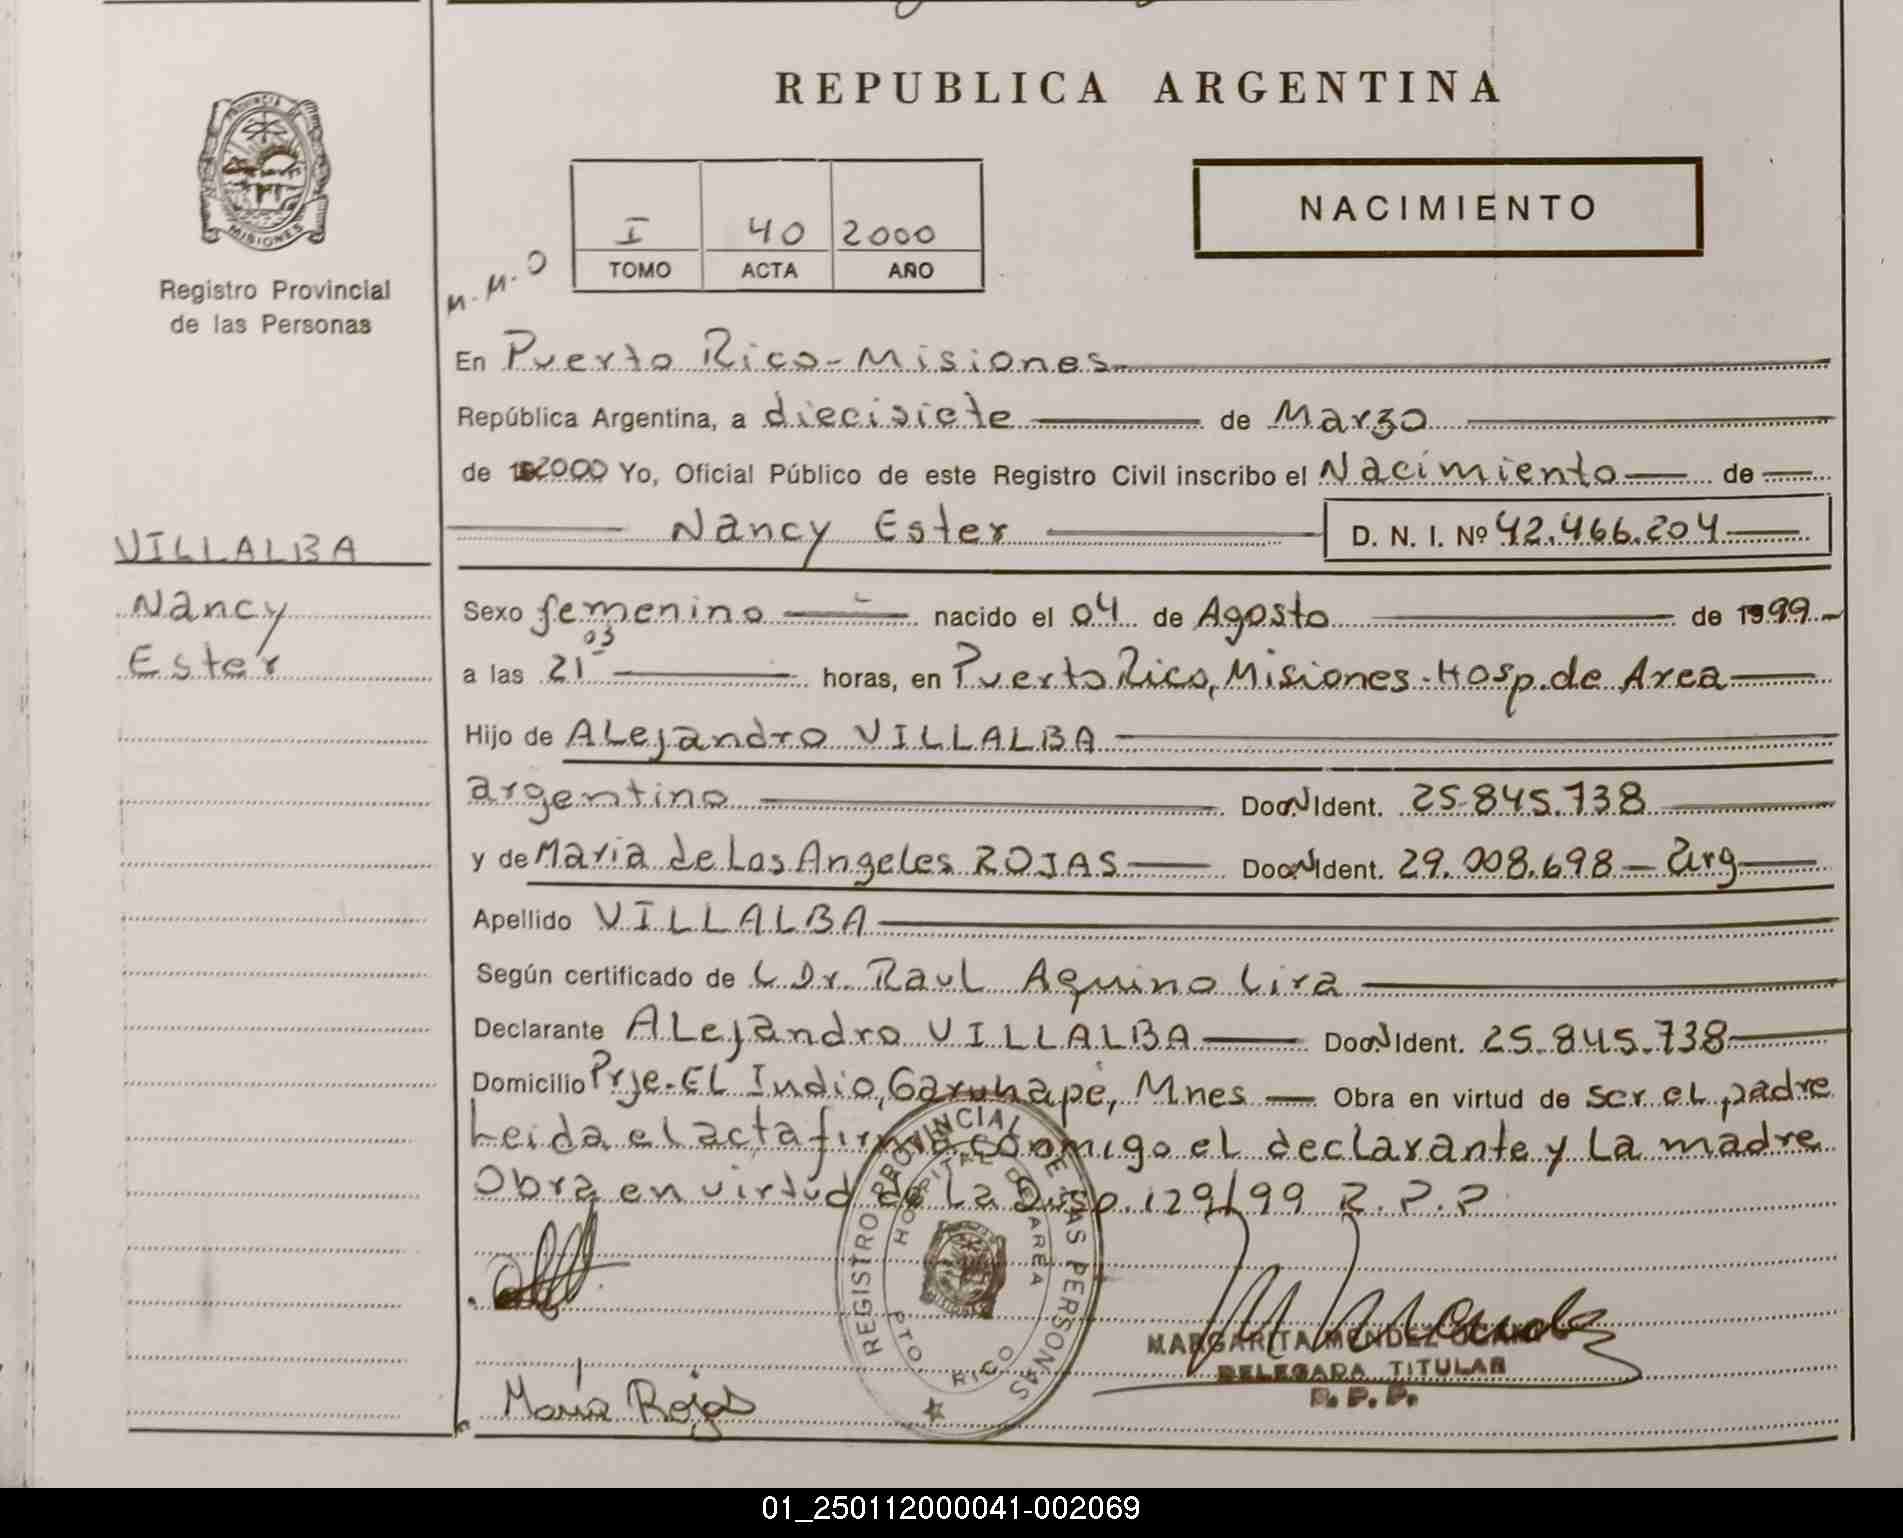 REPUBLICA ARGENTINA
PROVINCIA DE
MISIONES
Registro Provincial
de las Personas
I 40 2000
TOMO ACTA AÑO
NACIMIENTO
M.M.O
En Puerto Rico - Misiones
República Argentina, a diecisiete de Marzo
de 2000 Yo, Oficial Público de este Registro Civil inscribo el Nacimiento de
Nancy Ester D. N. I. Nº 42.466.204
VILLALBA
Nancy
Ester
Sexo femenino nacido el 04 de Agosto de 1999
a las 21 03 horas, en Puerto Rico, Misiones - Hosp. de Area
Hijo de ALejandro VILLALBA
argentino Doc. N Ident. 25.845.738
y de Maria de Los Angeles ROJAS Doc. N Ident. 29.008.698 - arg
Apellido VILLALBA
Según certificado de L Dr. Raul Aquino Lira
Declarante ALejandro VILLALBA Doc. N Ident. 25.845.738
Domicilio Prje. EL Indio, Garuhapé, Mnes Obra en virtud de ser el padre
Leida el acta firma conmigo el declarante y La madre
Obra en virtud de La Disp. 129/99 R.P.P
REGISTRO PROVINCIAL DE LAS PERSONAS
HOSPITAL DE AREA
PTO RICO
MARGARITA MENDEZ OCAMPO
DELEGADA TITULAR
R. P. P.
María Rojas
01_250112000041-002069